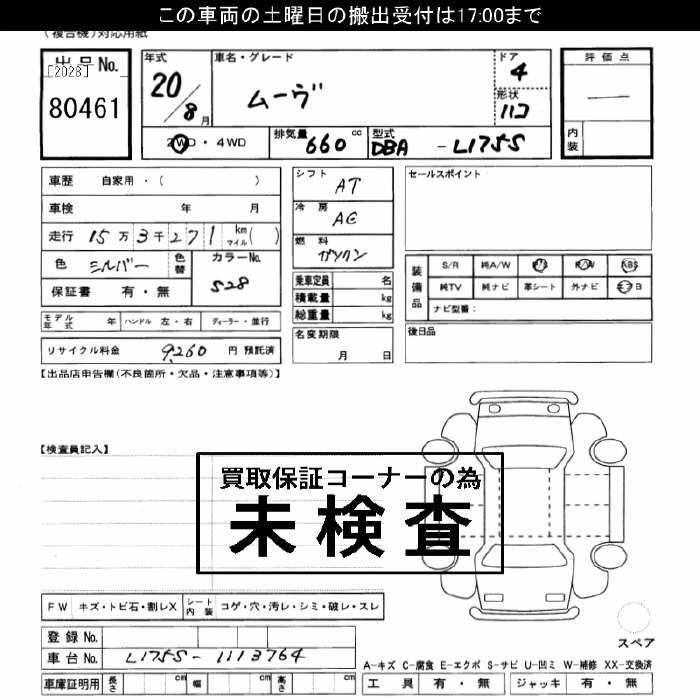 この車両の土曜日の搬出受付は17:00まで
(複合機)対応用紙
出品No. [2028] 80461
年式 20/8月
車名・グレード ムーヴ
ドア 4
形状 ハコ
評価点 —
内装
2WD・4WD
排気量 660 cc
型式 DBA - L175S
車歴 自家用・( )
車検 年 月
走行 15万3千271 km マイル( )
色 シルバー 色替 カラーNo. S28
保証書 有・無
シフト AT
冷房 AC
燃料 ガソリン
乗車定員 名
積載量 kg
総重量 kg
セールスポイント
装備品 S/R 純A/W P/S P/W ABS
純TV 純ナビ 革シート 外ナビ エアB
ナビ型番:
モデル年式 年 ハンドル 左・右 ディーラー・並行
名変期限 月 日
後日品
リサイクル料金 9,260 円 預託済
【出品店申告欄(不良箇所・欠品・注意事項等)】
【検査員記入】
買取保証コーナーの為
未検査
FW キズ・トビ石・割レX シート内装 コゲ・穴・汚レ・シミ・破レ・スレ
登録No.
車台No. L175S-1113764
スペア
A-キズ C-腐食 E-エクボ S-サビ U-凹ミ W-補修 XX-交換済
車庫証明用 長さ cm 幅 cm 高さ cm
工具 有・無 ジャッキ 有・無